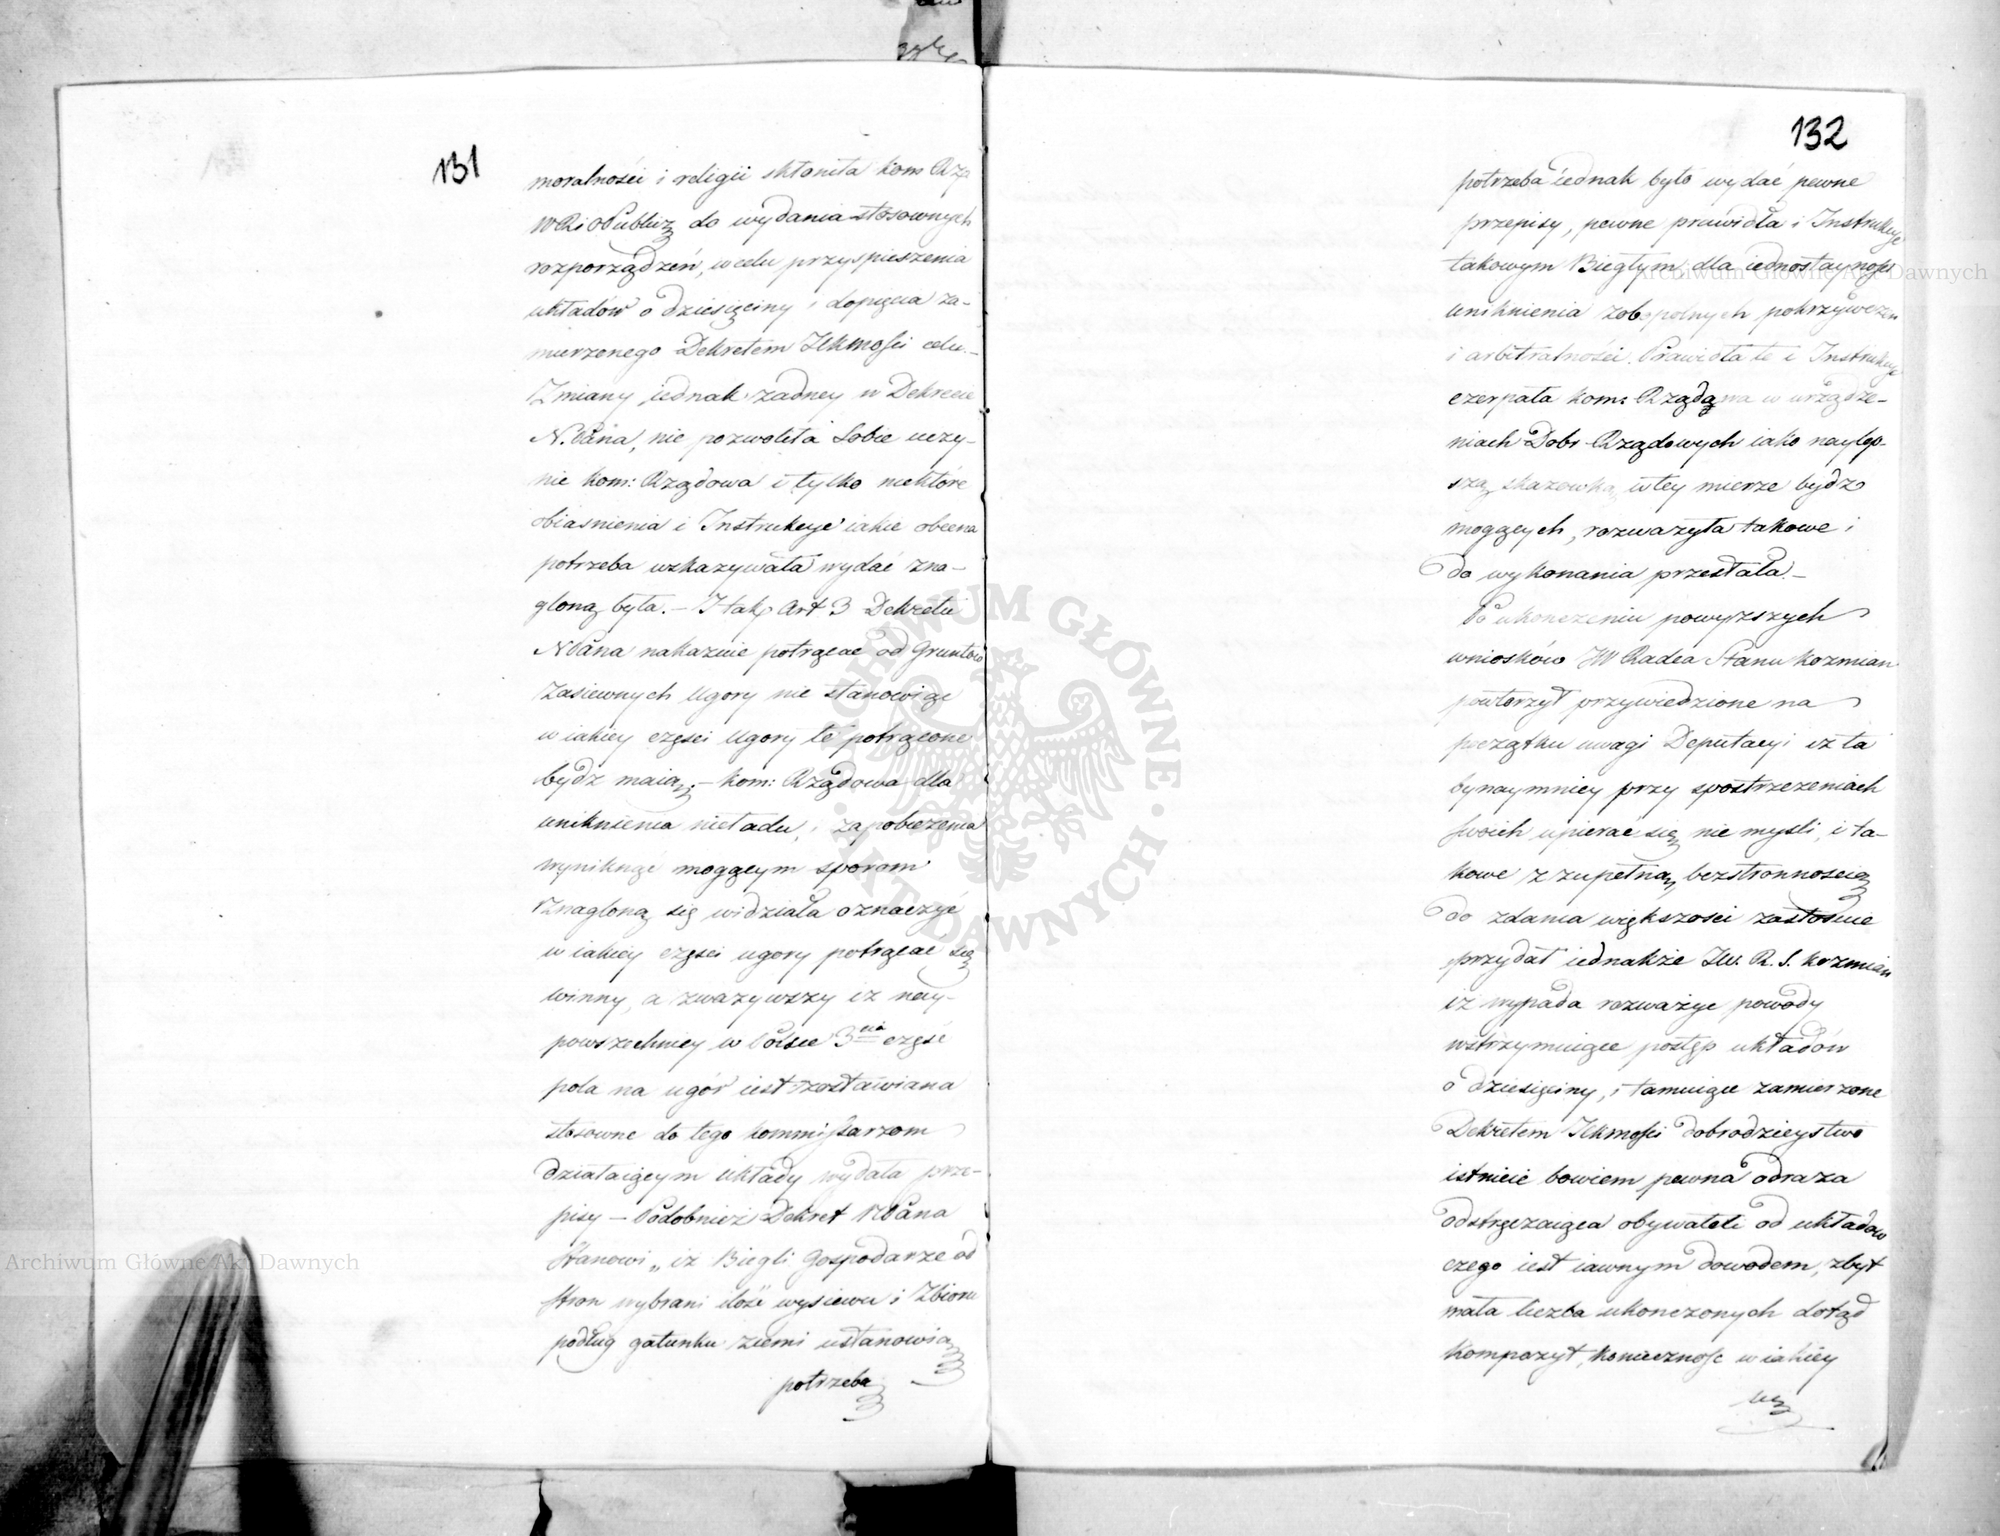 131
moralności i religii skłoniła kom Rzą
WR i OPubliz do wydania stosownych
rozporządzeń, w celu przyspieszenia
układów o dziesięciny i dopięcia za-
mierzonego Dekretem JKMości celu.-
Zmiany iednak żadney w Dekrecie
N. Pana, nie pozwoliła Sobie uczy-
nić kom: Rządowa i tylko niektóre
obiasnienia i Instrukcye iakie obecna
potrzeba wskazywała wydać zna-
gloną była. – I tak Art 3 Dekretu
NPana nakazuie potrącać od Gruntów
Zasiewnych Ugory nie stanowiąc
w iakiey częsci Ugory te potrącone
bydz maią. – kom: Rządowa dla
uniknienia nieładu, i zapobieżenia
wyniknąć mogącym sporom
Znagloną się widziała oznaczyć
w iakiey częsci ugory potrącać się
winny, a zważywszy iż nay-
powszechniey w Polsce 3cia część
pola na ugór iest zostawiana
stosowne do tego kommissarzom
działaiącym układy wydała prze-
pisy – Podobnież Dekret NPana
Stanowi „ iż Biegli Gospodarze od
stron wybrani ilość wysiewu i Zbioru
podług gatunku ziemi ustanowią
potrzeba
132
potrzeba iednak było wydać pewne
przepisy, pewne prawidła i Instrukcye
takowym Biegłym dla iednostayności
uniknienia zobopolnych pokrzywdzen
i arbitralności. Prawidła te i Instrukcye
czerpała kom: Rządowa w urządze-
niach Dobr Rządowych iako naylep-
szą skazowką w tey mierze bydz
mogących, rozważyła takowe i
do wykonania przesłała. –
Po ukonczeniu powyższych
wniosków JW Radca Stanu Kozmian
powtorzył przywiedzione na
początku uwagi Deputacyi iż ta
bynaymniey przy spostrzezeniach
swoich upierać się nie mysli, i ta-
kowe z zupełną bezstronnoscią
do zdania większosci zastosuie
przydał iednakże JW. R. S. Kozmian
iż wypada rozważyć powody
wstrzymuiące postęp układów
o dziesięciny, i tamuiące zamierzone
Dekretem JKMości dobrodzieystwo
istnieie bowiem pewna odraza
odstręczaiąca obywateli od układów
czego iest iawnym dowodem, zbyt
mała liczba ukonczonych dotąd
kompozyt, konieczność w iakiey
Archiwum Główne Akt Dawnych
Archiwum Główne Akt Dawnych
ARCHIWUM GŁÓWNE
AKT DAWNYCH